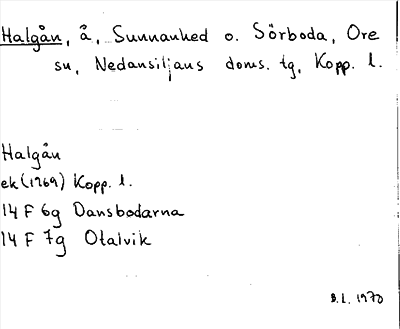 Halgån, å, Sunnanhed o. Sörboda, Ore
sn, Nedansiljans doms. tg, Kopp. l.
Halgån
ek (1969) Kopp. l.
14 F 6g Dansbodarna
14 F 7g Otalvik
B.L. 1970